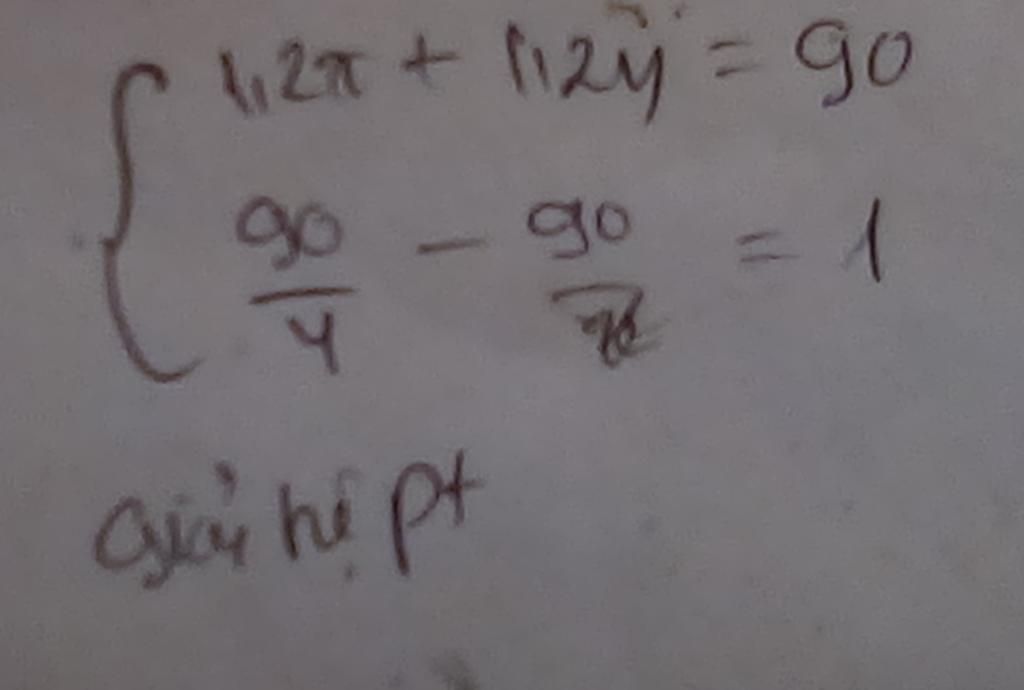 1,2x + 1,2y = 90
90/y - 90/x = 1
Giải hệ pt